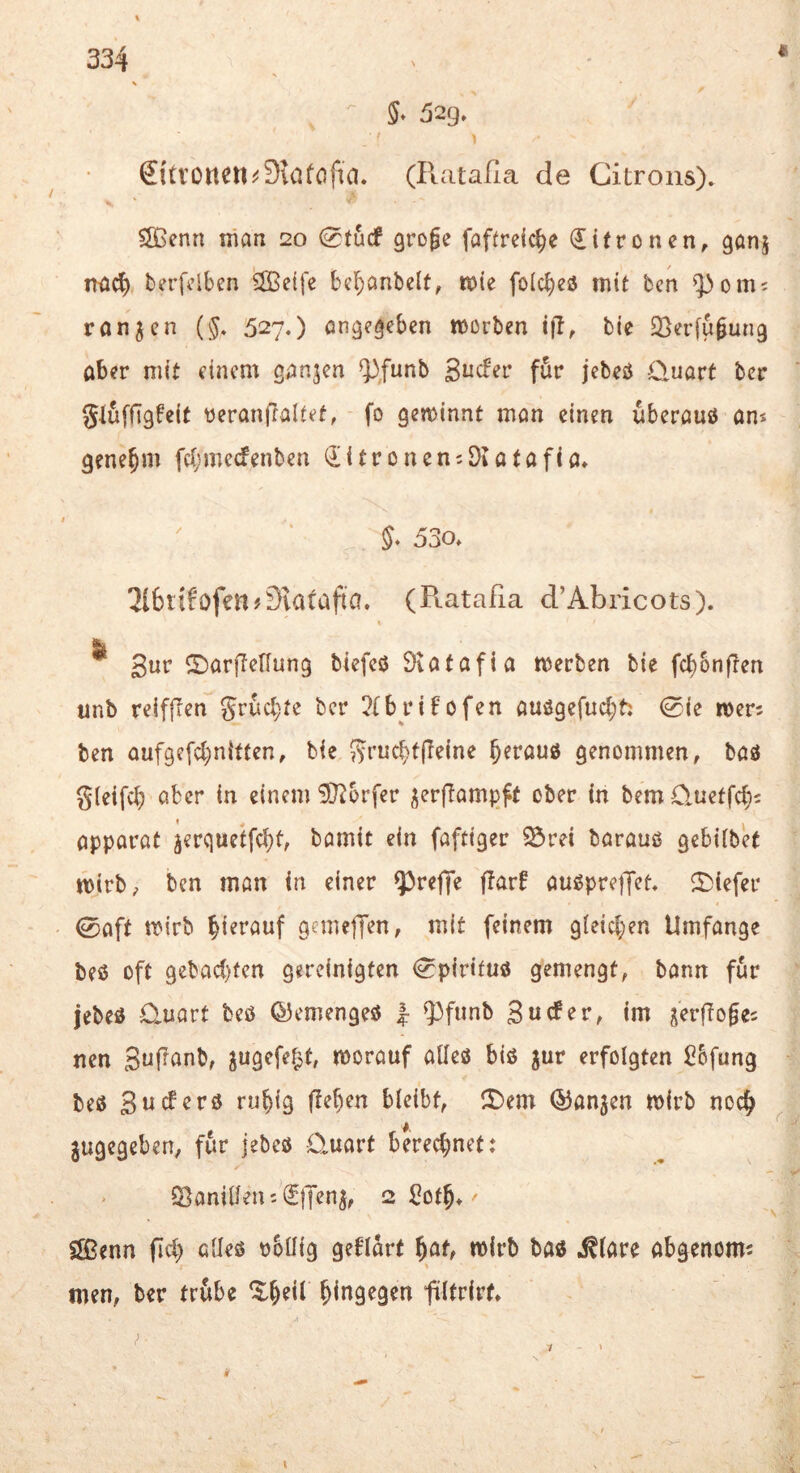 334
§. 529.
Citronen-Ratafia. (Ratafia de Citrons).
Wenn man 20 Stück große saftreiche Citronen, ganz
nach derselben Weise behandelt, wie solches mit den Pom-
ranzen (§. 527.) angegeben worden ist, die Versüßung
aber mit einem ganzen Pfund Zucker für jedes Quart der
Flüssigkeit veranstaltet, so gewinnt man einen überaus an-
genehm schmeckenden Citronen-Ratafia.
§. 530.
Abrikosen-Ratafia. (Ratafia d'Abricots).
Zur Darstellung dieses Ratafia werden die schönsten
und reifsten Früchte der Abrikosen ausgesucht. Sie wer-
den aufgeschnitten, die Fruchtsteine heraus genommen, das
Fleisch aber in einem Mörser zerstampft oder in dem Quetsch-
apparat zerquetscht, damit ein saftiger Brei daraus gebildet
wird, den man in einer Presse stark auspresset. Dieser
Saft wird hierauf gemessen, mit seinem gleichen Umfange
des oft gedachten gereinigten Spiritus gemengt, dann für
jedes Quart des Gemenges Pfund Zucker, im zerstoße-
nen Zustand, zugesetzt, worauf alles bis zur erfolgten Lösung
des Zuckers ruhig stehen bleibt, Dem Ganzen wird noch
zugegeben, für jedes Quart berechnet:
Vanillen-Essenz, 2 Loth.
Wenn sich alles völlig geklärt hat, wird das Klare abgenom-
men, der trübe Theil hingegen filtrirt.